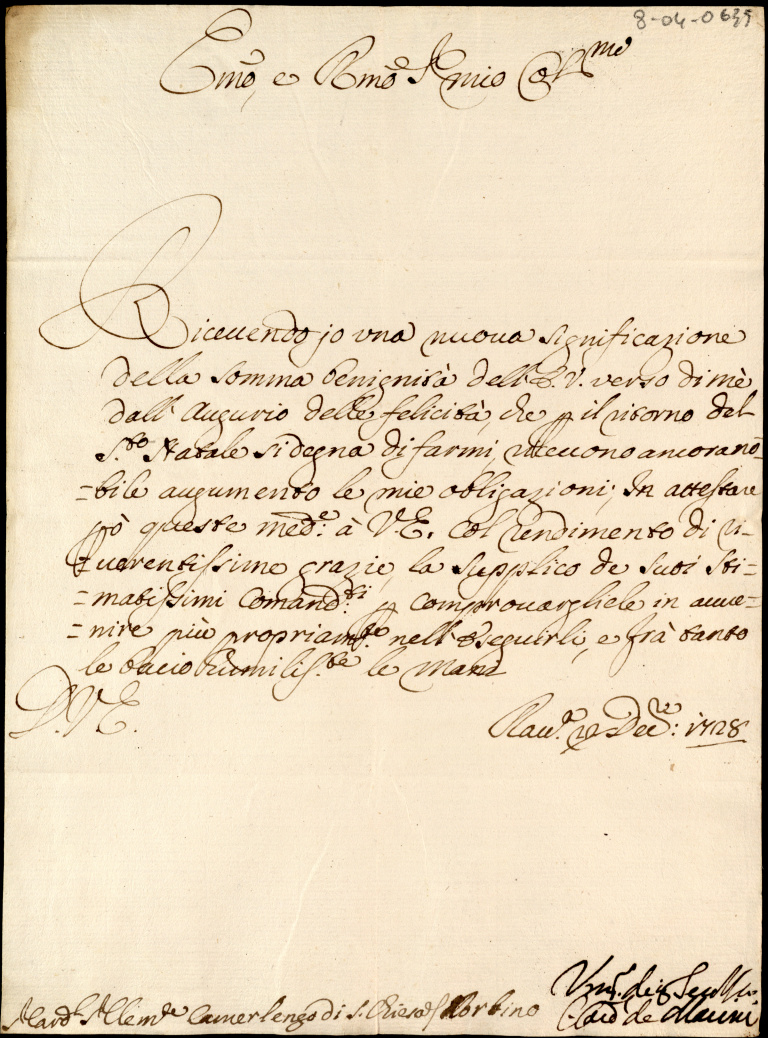 8-04-0635
Emo, e Rmo Sr mio Colmo
Riceuendo jo vna nuoua significazione
della somma benignità dell'E.V. verso di mè
dall'Augurio delle felicità, che p il ritorno del
S.to Natale si degna di farmi, riceuono ancora no=
=bile augumento le mie obligazioni; In attestare
pò queste med.e à V.E. col rendimento di ri=
=uerentissime grazie, la supplico de suoi sti=
=matissimi Comand.ti p comprouargliele in auue=
=nire più propriam.te nell'eseguirli, e frà tanto
le bacio humiliss.te le mani
D.V.E.
Rau.a Decre: 1728
Camerlengo di S. Chiesa
Card de